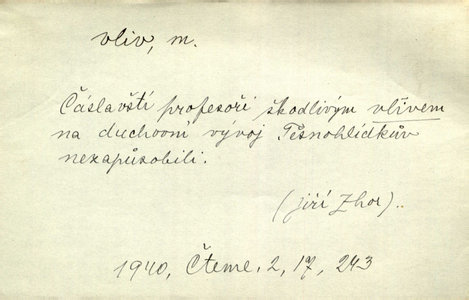 vliv, m.
Čáslavští profesoři škodlivým vlivem
na duchovní vývoj Těsnohlídkův
nezapůsobili.
(Jiří Zhor)..
1940, Čteme, 2, 17, 243